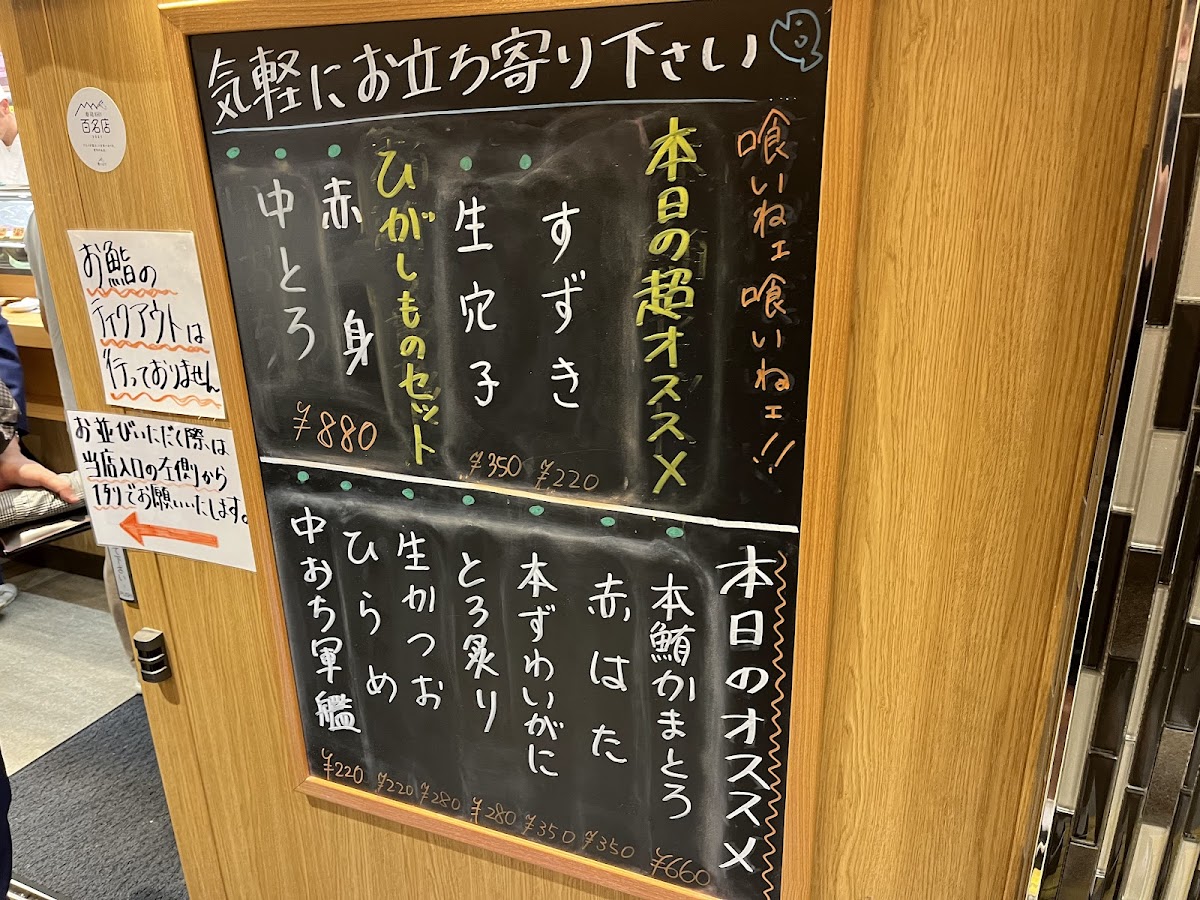 気軽にお立ち寄り下さい
喰いねェ喰いねェ!!
本日の超オススメ
すずき
¥220
生穴子
¥350
ひがしものセット
赤身
中とろ
¥880
本日のオススメ
本鮪かまとろ
¥660
赤はた
¥350
本ずわいがに
¥350
とろ炙り
¥280
生かつお
¥280
ひらめ
¥220
中おち軍艦
¥220
百名店
お鮨の
テイクアウトは
行っておりません
お並びいただく際は
当店入口の左側から
1列でお願いいたします。